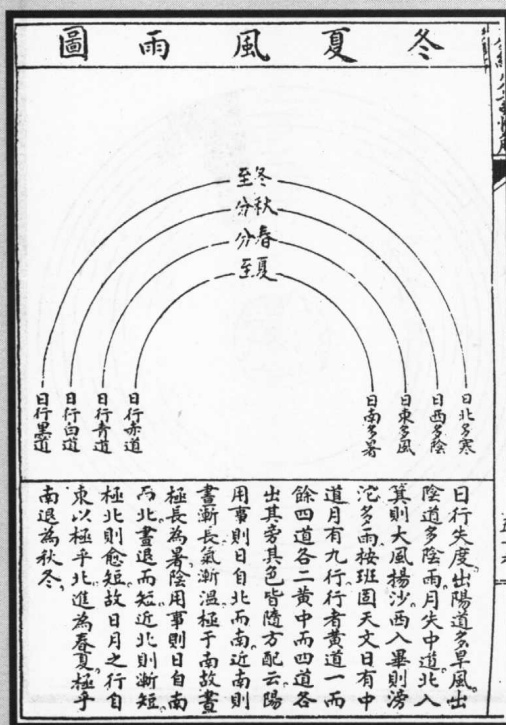 冬夏風雨圖
冬至
秋分
春分
夏至
日北多寒
日西多陰
日東多風
日南多暑
日行赤道
日行青道
日行白道
日行黑道
日行失度。出陽道多旱風。出
陰道多陰雨。月失中道。北入
箕則大風揚沙。西入畢則滂
沱多雨。按班固天文日有中
道月有九行。行者黃道一而
餘四道各二黃中而四道各
出其旁其色皆隨方配云陽
用事則日自北而南。近南則
晝漸長氣漸溫極于南故晝
極長為暑。陰用事則日自南
而北。晝退而短近北則漸短。
極北則愈短。故日月之行自
東以極乎北。進為春夏。極乎
南退為秋冬。